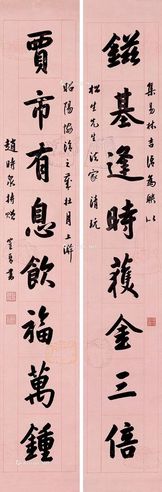 集易林吉語為聯以
鎡基逢時獲金三倍
松生先生法家清玩
昭陽協洽之歲壯月上澣
賈市有息飲福萬鍾
趙時泉持贈
書